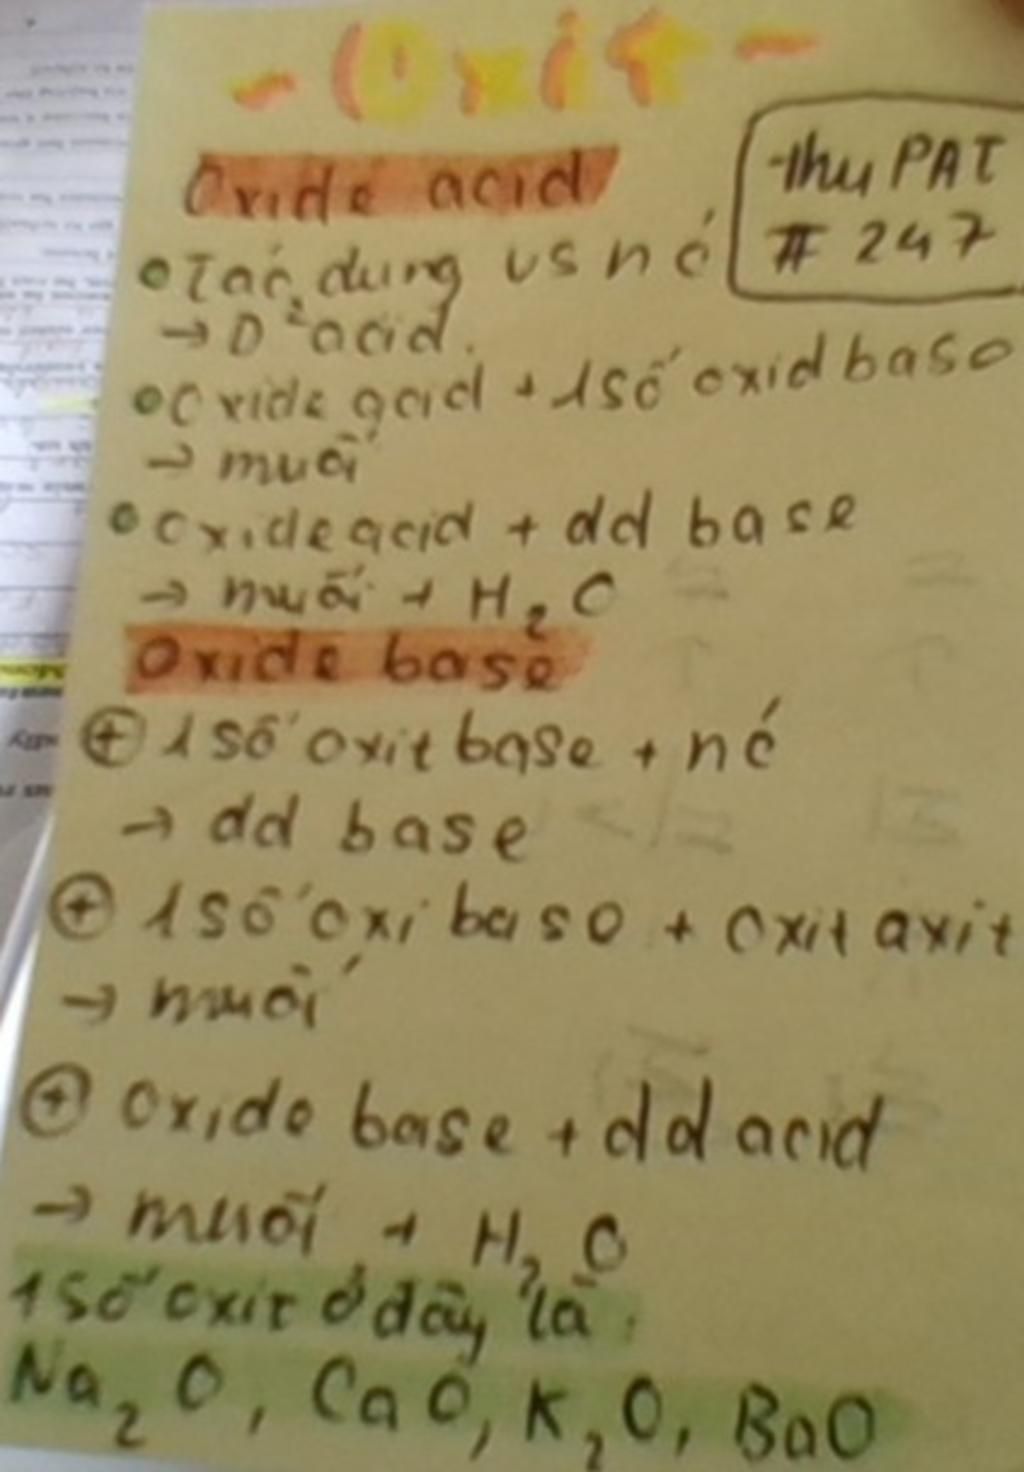 - Oxit -
Oxide acid
thy PAT
# 247
Tác dụng vs nć
→ D² acid.
Oxide acid + 1 số oxid baso
→ muối
oxide acid + dd base
→ muối + H₂O
Oxide base
⊕ 1 số oxit base + nć
→ dd base
⊕ 1 số oxi baso + oxit axit
→ muối
⊕ oxide base + dd acid
→ muối + H₂O
1 số oxit ở đây là:
Na₂O, CaO, K₂O, BaO